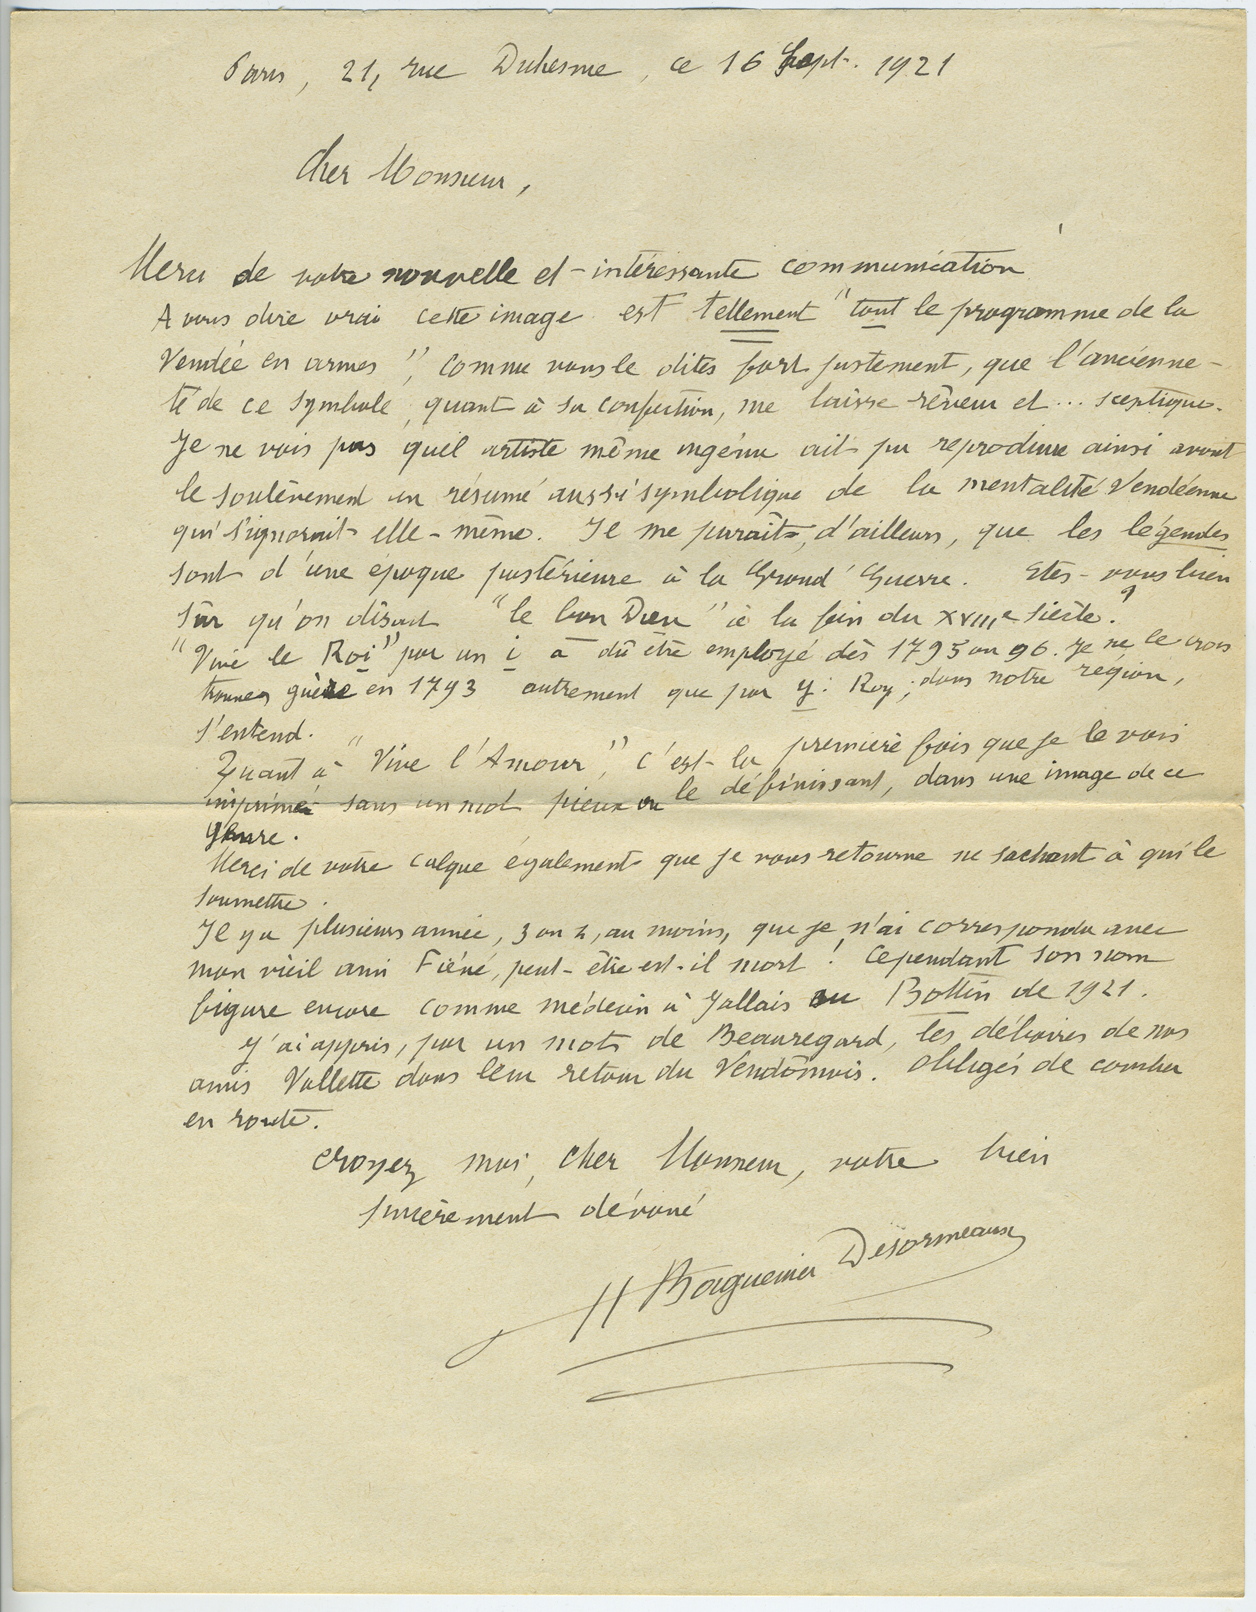 Paris, 21, rue Duhesme, ce 16 Sept. 1921
Cher Monsieur,
Merci de votre nouvelle et intéressante communication
A vous dire vrai cette image est tellement "tout le programme de la
Vendée en armes", comme vous le dites fort justement, que l'ancienne-
té de ce symbole, quant à sa confection, me laisse rêveur et... sceptique.
Je ne vois pas quel artiste même ingénu ait pu reproduire ainsi avant
le soulèvement un résumé aussi symbolique de la mentalité Vendéenne
qui s'ignorait elle-même. Il me paraît, d'ailleurs, que les légendes
sont d'une époque postérieure à la Grand' Guerre. Etes-vous bien
sûr qu'on disait "le bon Dieu" à la fin du XVIIIe siècle ?
"Vive le Roi" par un i a dû être employé dès 1795 ou 96. Je ne le crois
trouver guère en 1793 autrement que par y : Roy ; dans notre région,
s'entend.
Quant à "Vive l'Amour", c'est la première fois que je le vois
imprimé sans un mot pieux le définissant, dans une image de ce
genre.
Merci de votre calque également que je vous retourne ne sachant à qui le
soumettre.
Il y a plusieurs année, 3 ou 4, au moins, que je n'ai correspondu avec
mon vieil ami Fiéné, peut-être est-il mort ! Cependant son nom
figure encore comme médecin à Jallais au Bottin de 1921.
J'ai appris, par un mots de Beauregard, les déboires de nos
amis Vallette dans leur retour du Vendômois. Obligés de coucher
en route.
Croyez moi, Cher Monsieur, votre bien
sincèrement dévoué
H Baguenier Désormeaux